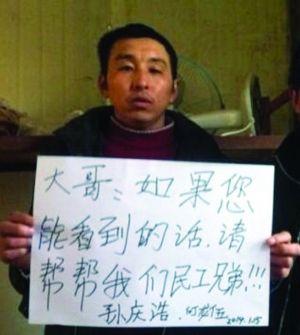 大哥：如果您
能看到的话，请
帮帮我们民工兄弟!!!
孙庆浩 2014.1.15